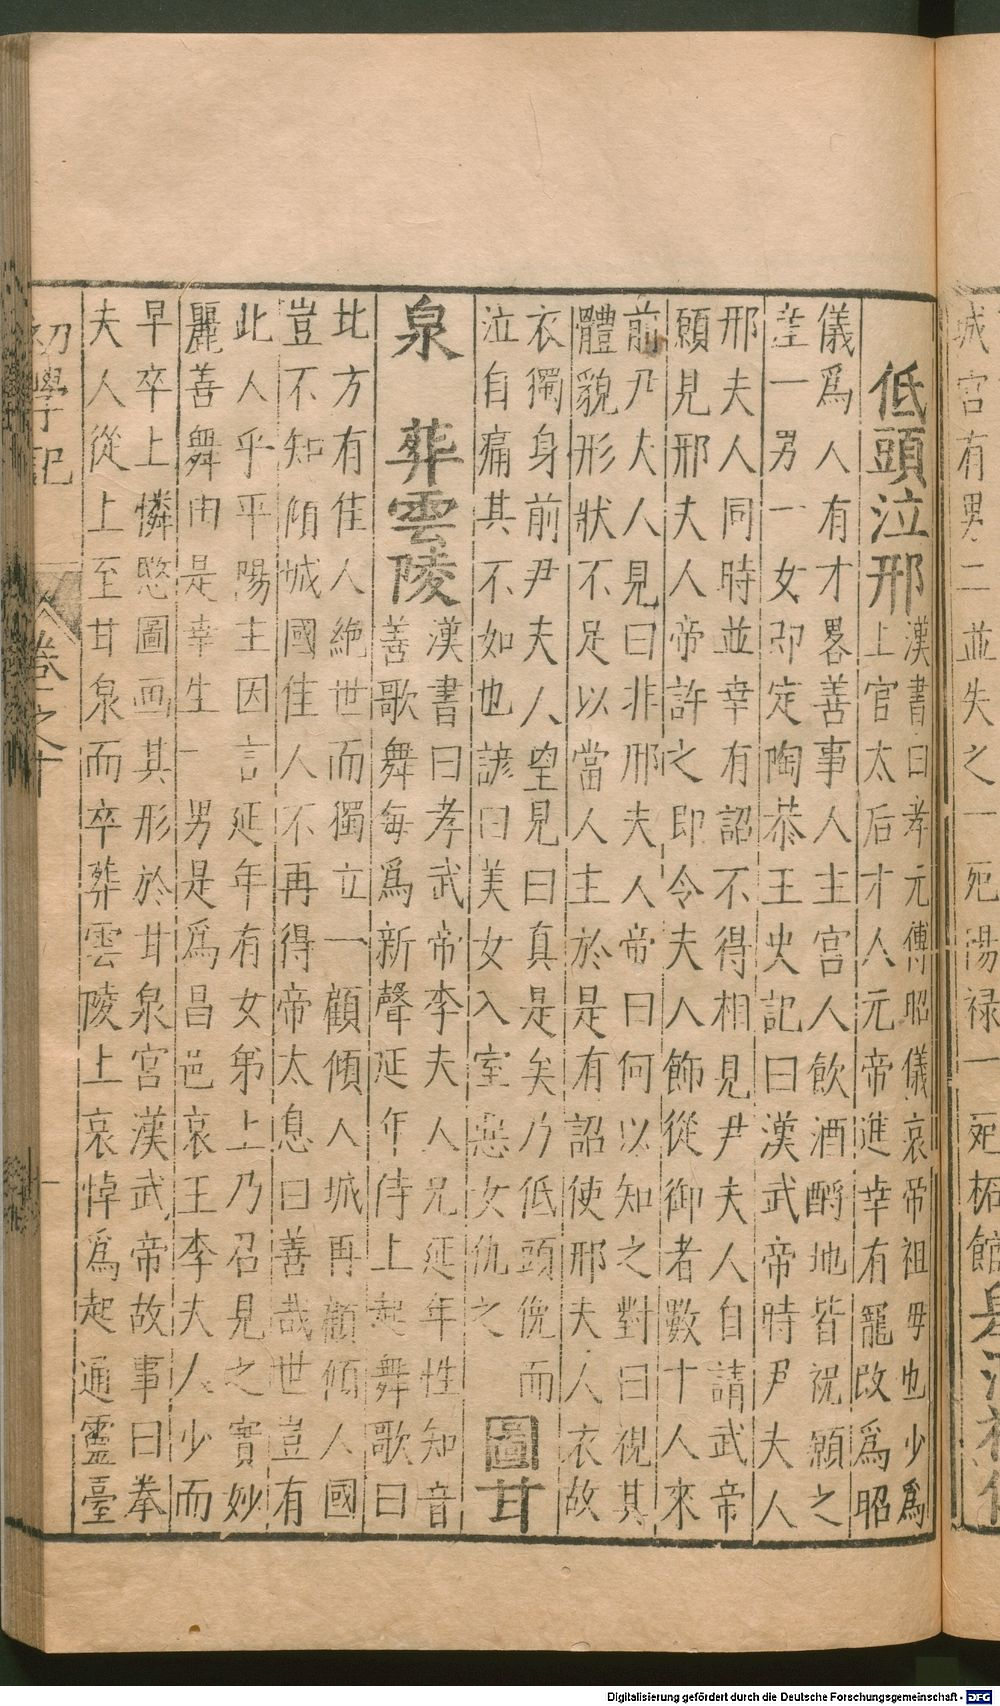 城宮有男二並失之一死陽禄一死柘館
低頭泣邢
漢書曰孝元傅昭儀哀帝祖母也少爲
上官太后才人元帝進幸有寵改爲昭
儀爲人有才畧善事人主宮人飲酒酹地皆祝願之
産一男一女即定陶恭王史記曰漢武帝時尹夫人
邢夫人同時並幸有詔不得相見尹夫人自請武帝
願見邢夫人帝許之即令夫人飾從御者數十人來
前尹夫人見曰非邢夫人帝曰何以知之對曰視其
體貌形狀不足以當人主於是有詔使邢夫人衣故
衣獨身前尹夫人望見曰真是矣乃低頭俛而
泣自痛其不如也諺曰美女入室惡女仇之
圖甘
泉 葬雲陵
漢書曰孝武帝李夫人兄延年性知音
善歌舞每爲新聲延年侍上起舞歌曰
北方有佳人絶世而獨立一顧傾人城再顧傾人國
豈不知傾城國佳人不再得帝太息曰善哉世豈有
此人乎平陽主因言延年有女弟上乃召見之實妙
麗善舞由是幸生一男是爲昌邑哀王李夫人少而
早卒上憐愍圖画其形於甘泉宮漢武帝故事曰拳
夫人從上至甘泉而卒葬雲陵上哀悼爲起通靈臺
初學記 卷之十
Digitalisierung gefördert durch die Deutsche Forschungsgemeinschaft - DFG